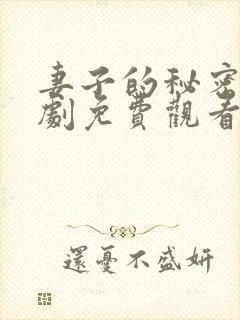 妻子的秘密
劇免費觀看
還憂不盛妍